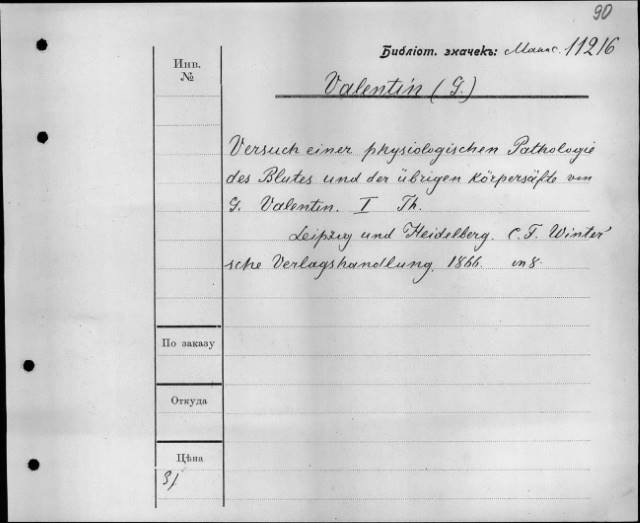 90
Библіот. значекъ: Манс. 11216
Инв.
№
Valentin (G.)
Versuch einer physiologischen Pathologie
des Blutes und der übrigen Körpersäfte von
G. Valentin. I Th.
Leipzig und Heidelberg. C. F. Winter'
sche Verlagshandlung. 1866. in 8.
По заказу
Откуда
Цѣна